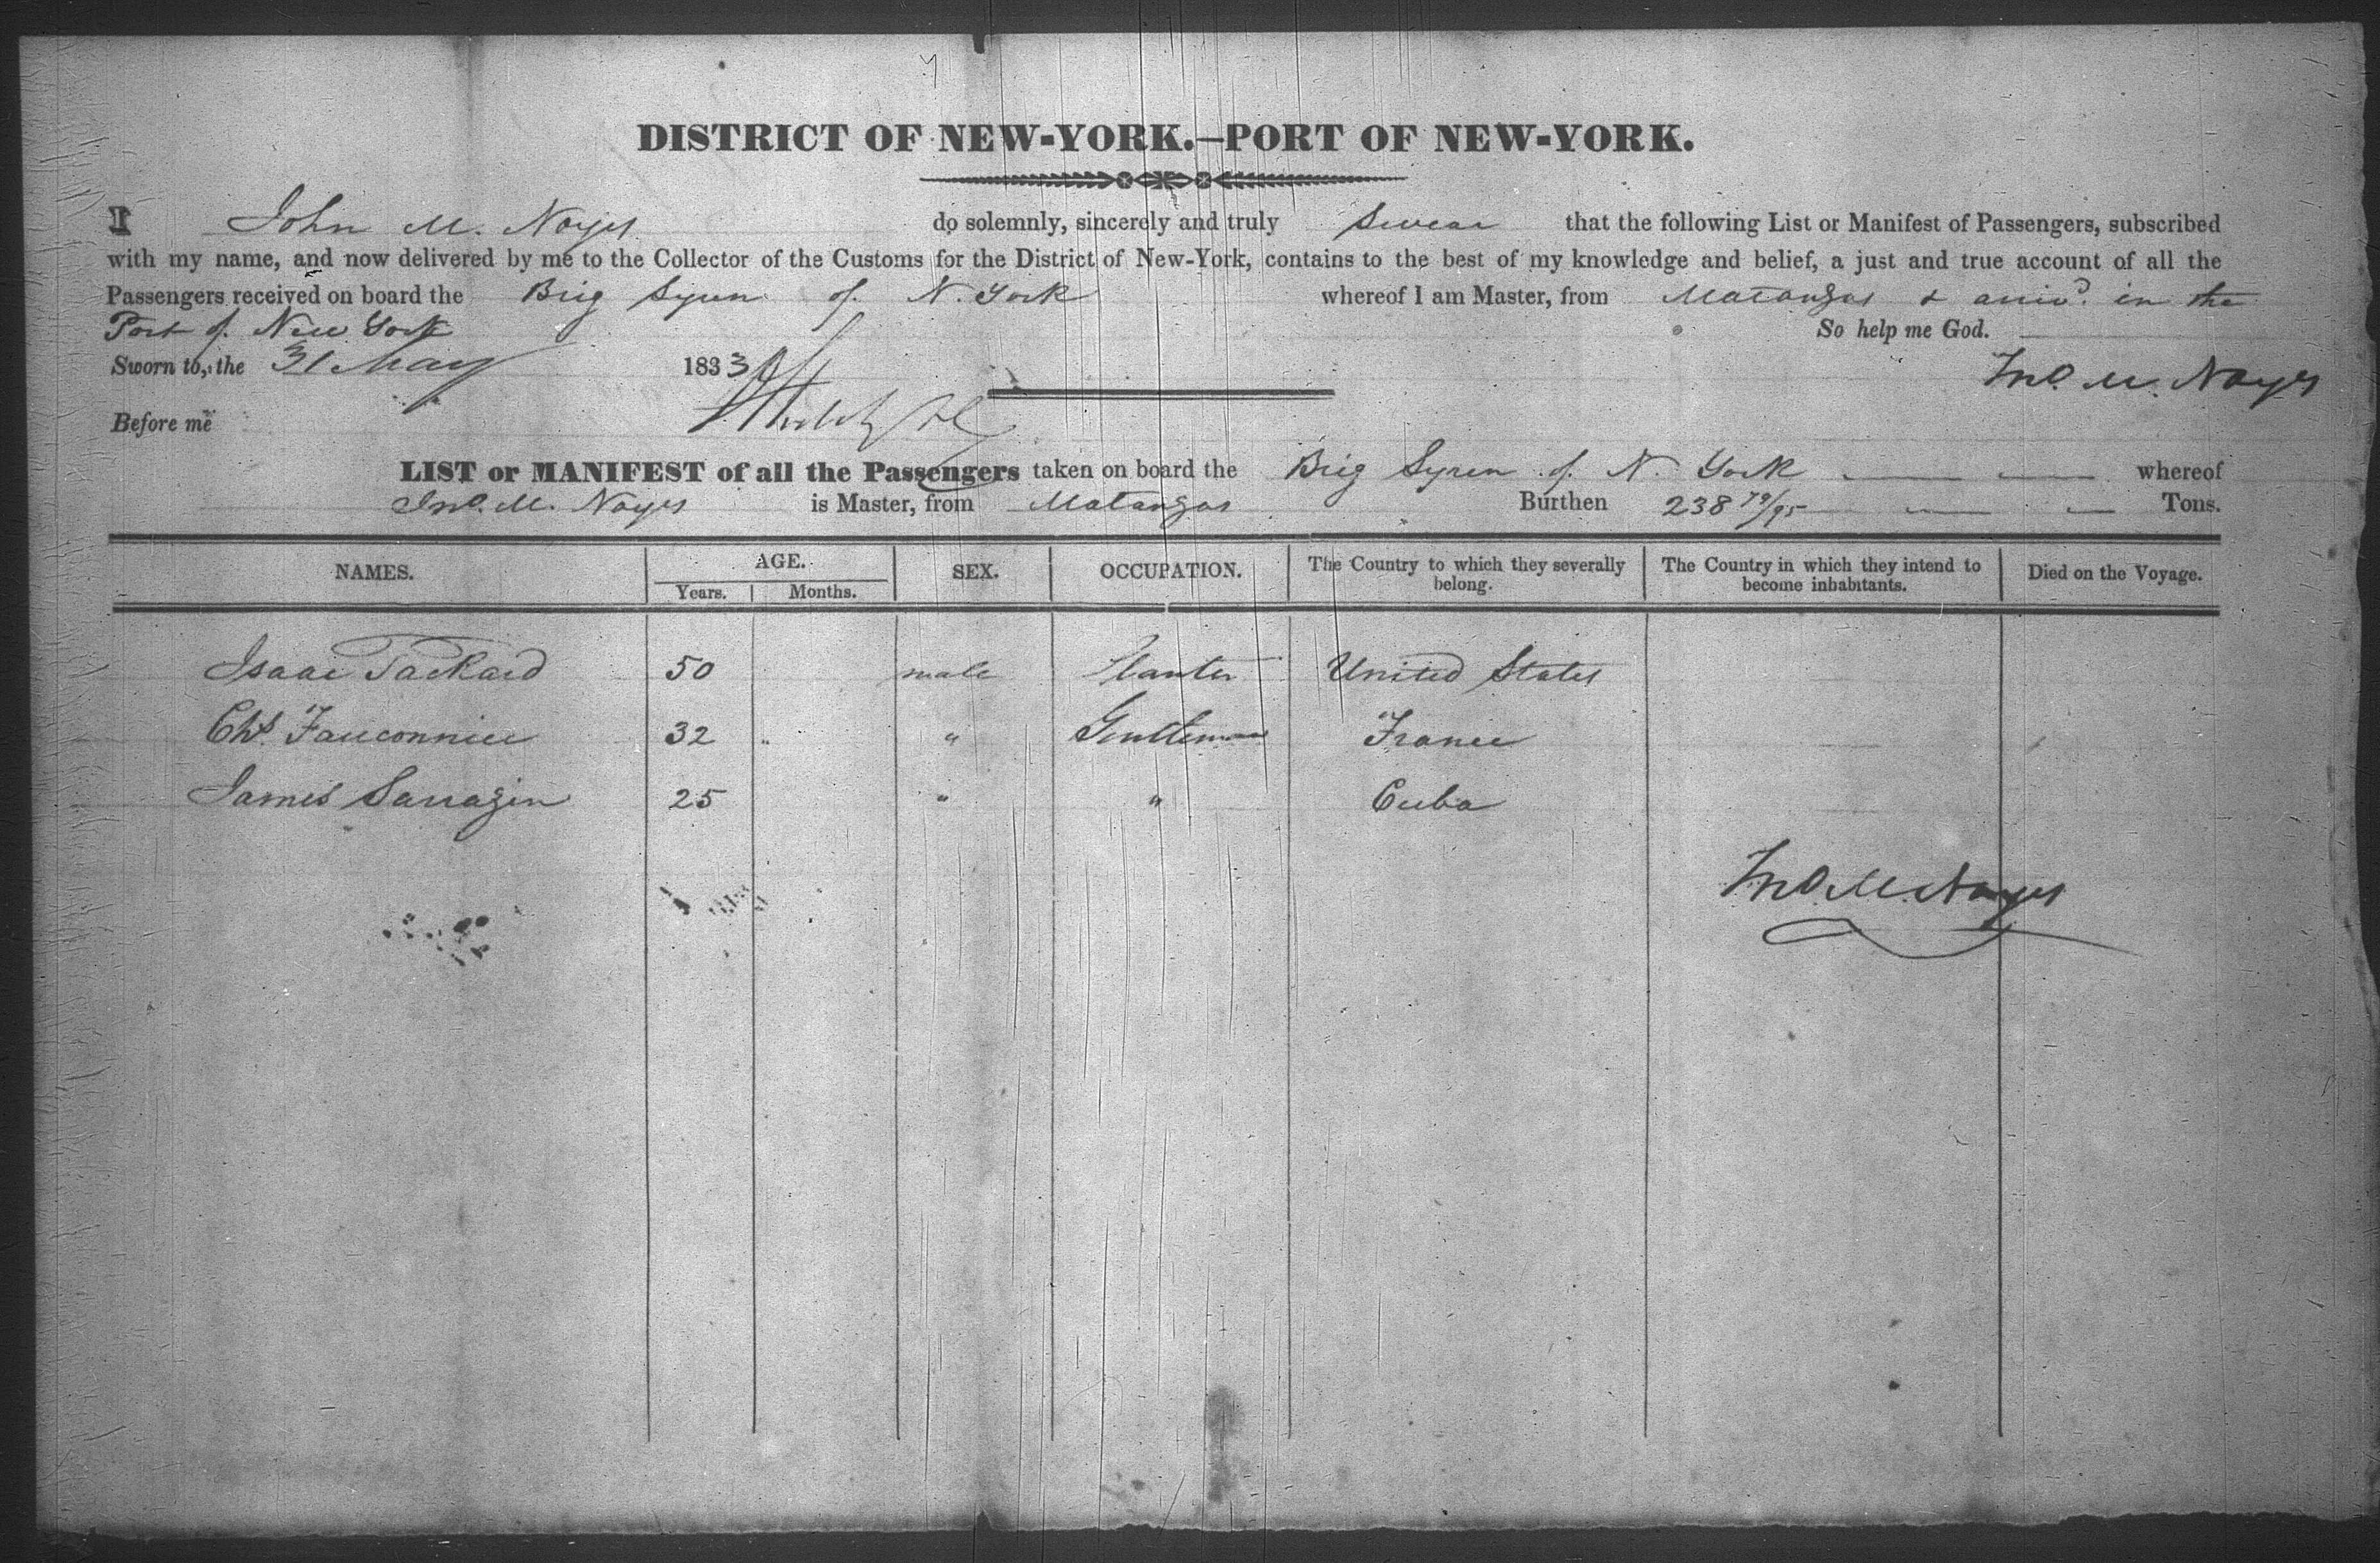 DISTRICT OF NEW-YORK.—PORT OF NEW-YORK.
I John M. Noyes do solemnly, sincerely and truly Swear that the following List or Manifest of Passengers, subscribed
with my name, and now delivered by me to the Collector of the Customs for the District of New-York, contains to the best of my knowledge and belief, a just and true account of all the
Passengers received on board the Brig Syren of N. York whereof I am Master, from Matanzas & arrivd. in the
Port of New York So help me God.
Sworn to, the 31 May 1833 Jno. M. Noyes
Before me
LIST or MANIFEST of all the Passengers taken on board the Brig Syren of N. York whereof
Jno. M. Noyes is Master, from Matanzas Burthen 238 79/95 Tons.
NAMES. AGE. SEX. OCCUPATION. The Country to which they severally belong. The Country in which they intend to become inhabitants. Died on the Voyage.
Years. Months.
Isaac Packard 50 male Planter United States
Chs. Fauconnier 32 " " Gentleman France
James Sarrazin 25 " " Cuba
Jno. M. Noyes